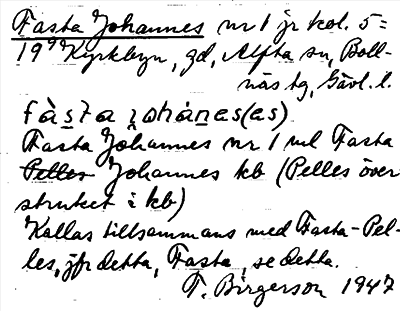 Fasta Johannes nr 1 jr kol. 5=
19 99 Kyrkbyn, gd, Alfta sn, Boll-
näs tg, Gävl. l.
Fasta Johannes nr 1 ml Fasta
Pelles Johannes kb (Pelles över
struket i kb)
Kallas tillsammans med Fasta-Pel-
les, jfr detta, Fasta, se detta.
T. Birgerson 1947